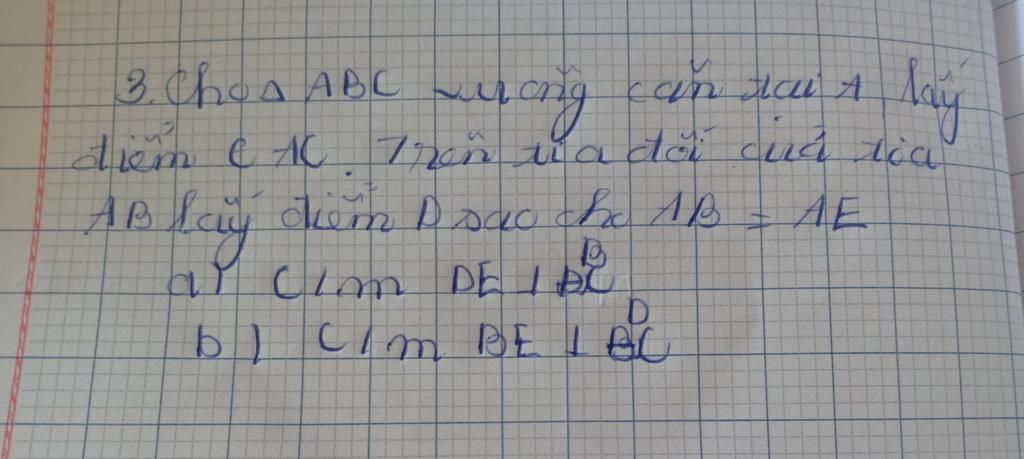 3. Cho Δ ABC vuông cân tại A lấy
điểm E AC. Trên tia đối của tia
AB lấy điểm D sao cho AB = AE
a) C/m DE ⊥ BC
b) C/m BE ⊥ DC